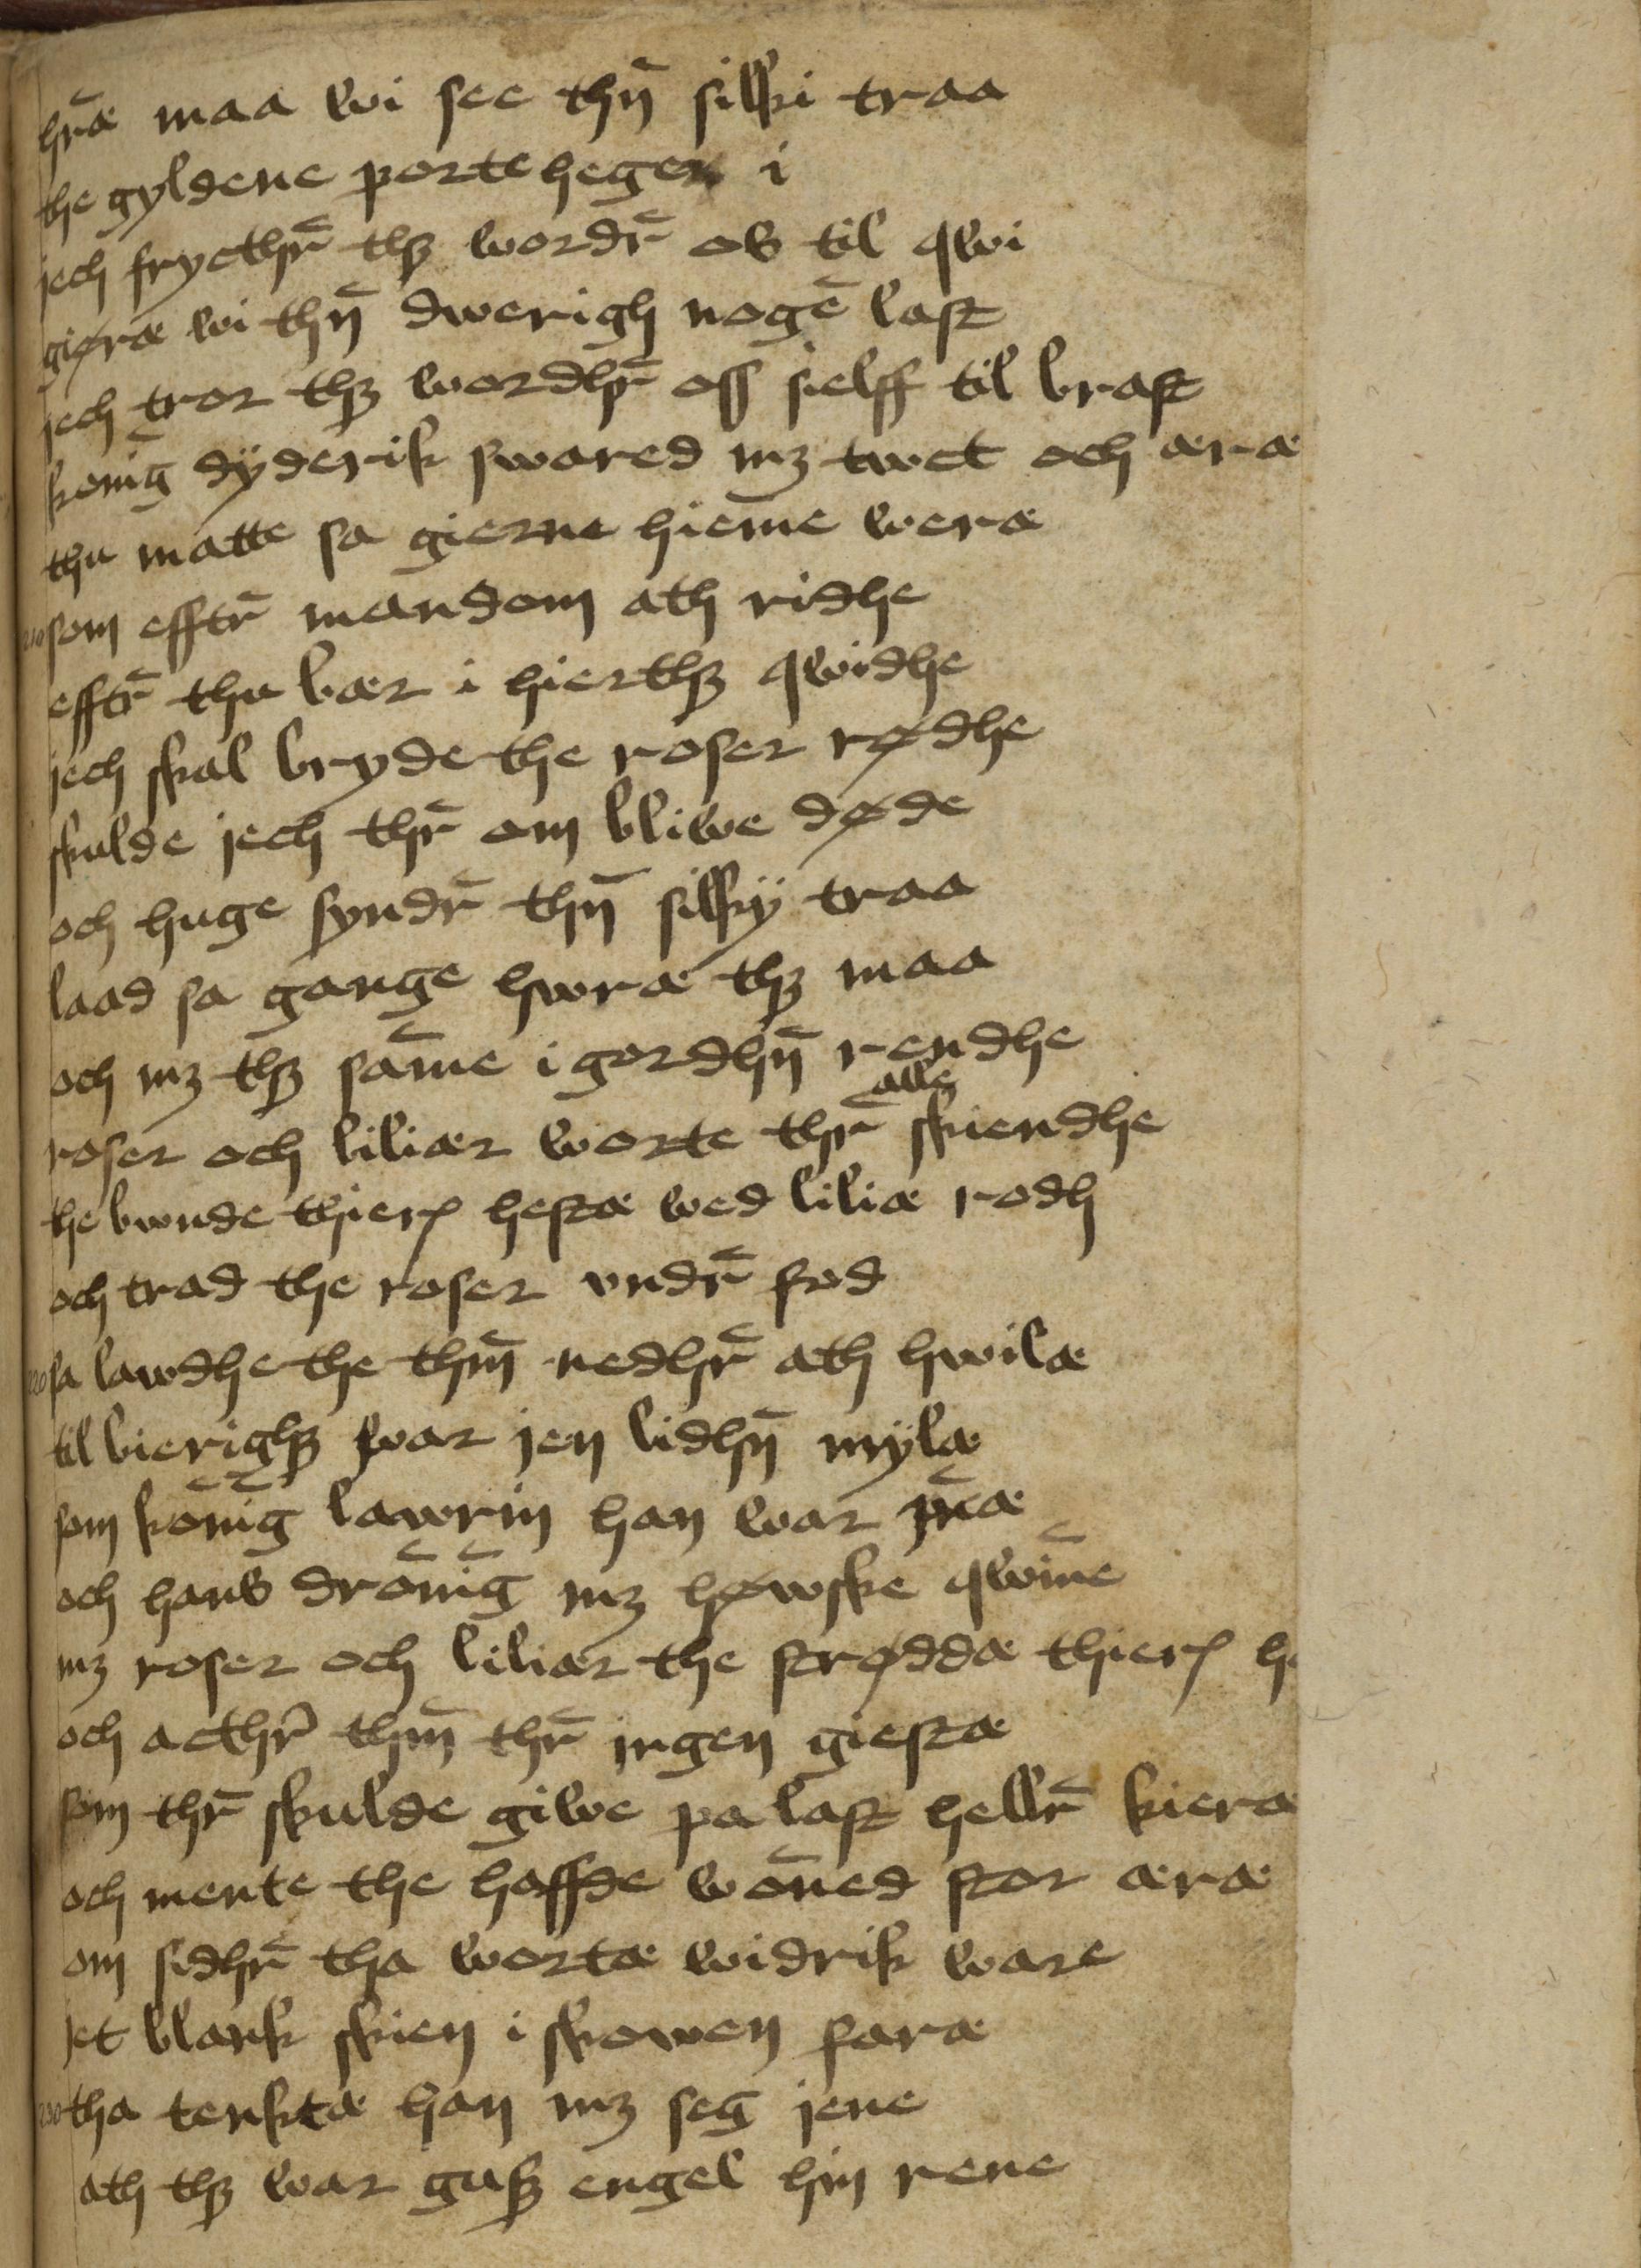 hr̄æ maa wi see thn̄ silki traa
the gyldene porte heger i
jech frycthr̄ thꝫ wordr̄ os til qwi
giøræ wi thn̄ dwerigh nogē last
jech tror thꝫ wordhr̄ oss sielff til brast
konīg dÿderik swared mꝫ twct och æræ
thu matte sa gierne hiem̄e weræ
210 som efftr̄ mandom ath ridhe
efftr̄ thu bær i hierthꝫ qwidhe
jech skal bryde the roser rødhe
skulde jech thr̄ om bliwe døde
och huge syndr̄ thn̄ silkÿ traa
laad sa gange hworæ thꝫ maa
och mꝫ thꝫ sam̄e i gordhn̄ rendhe
roser och liliær worte thr̄ alle skiendhe
the bwnde thierꝭ hestæ wed liliæ rodh
och trad the roser vndr̄ fod
220 sa lawdhe the thm̄ nedhr̄ ath hwilæ
til bierighꝫ war jen lidhn̄ mÿlæ
som kon̄īg lawrin han war jn̄æ
och hans dron̄īg mꝫ høwske qwin̄e
mꝫ roser och liliær the strøddæ thierꝭ
och acthr̄ thm̄ thr̄ ingen giestæ
som thr̄ skulde giwe pa last hellr̄ kiera
och mente the haffde won̄ed stor æræ
om sidhr̄ tha wortæ widrik ware
jet blank skien i skowen faræ
230 tha tenktæ han mꝫ seg jene
ath thꝫ war gusꝫ engel hin rene